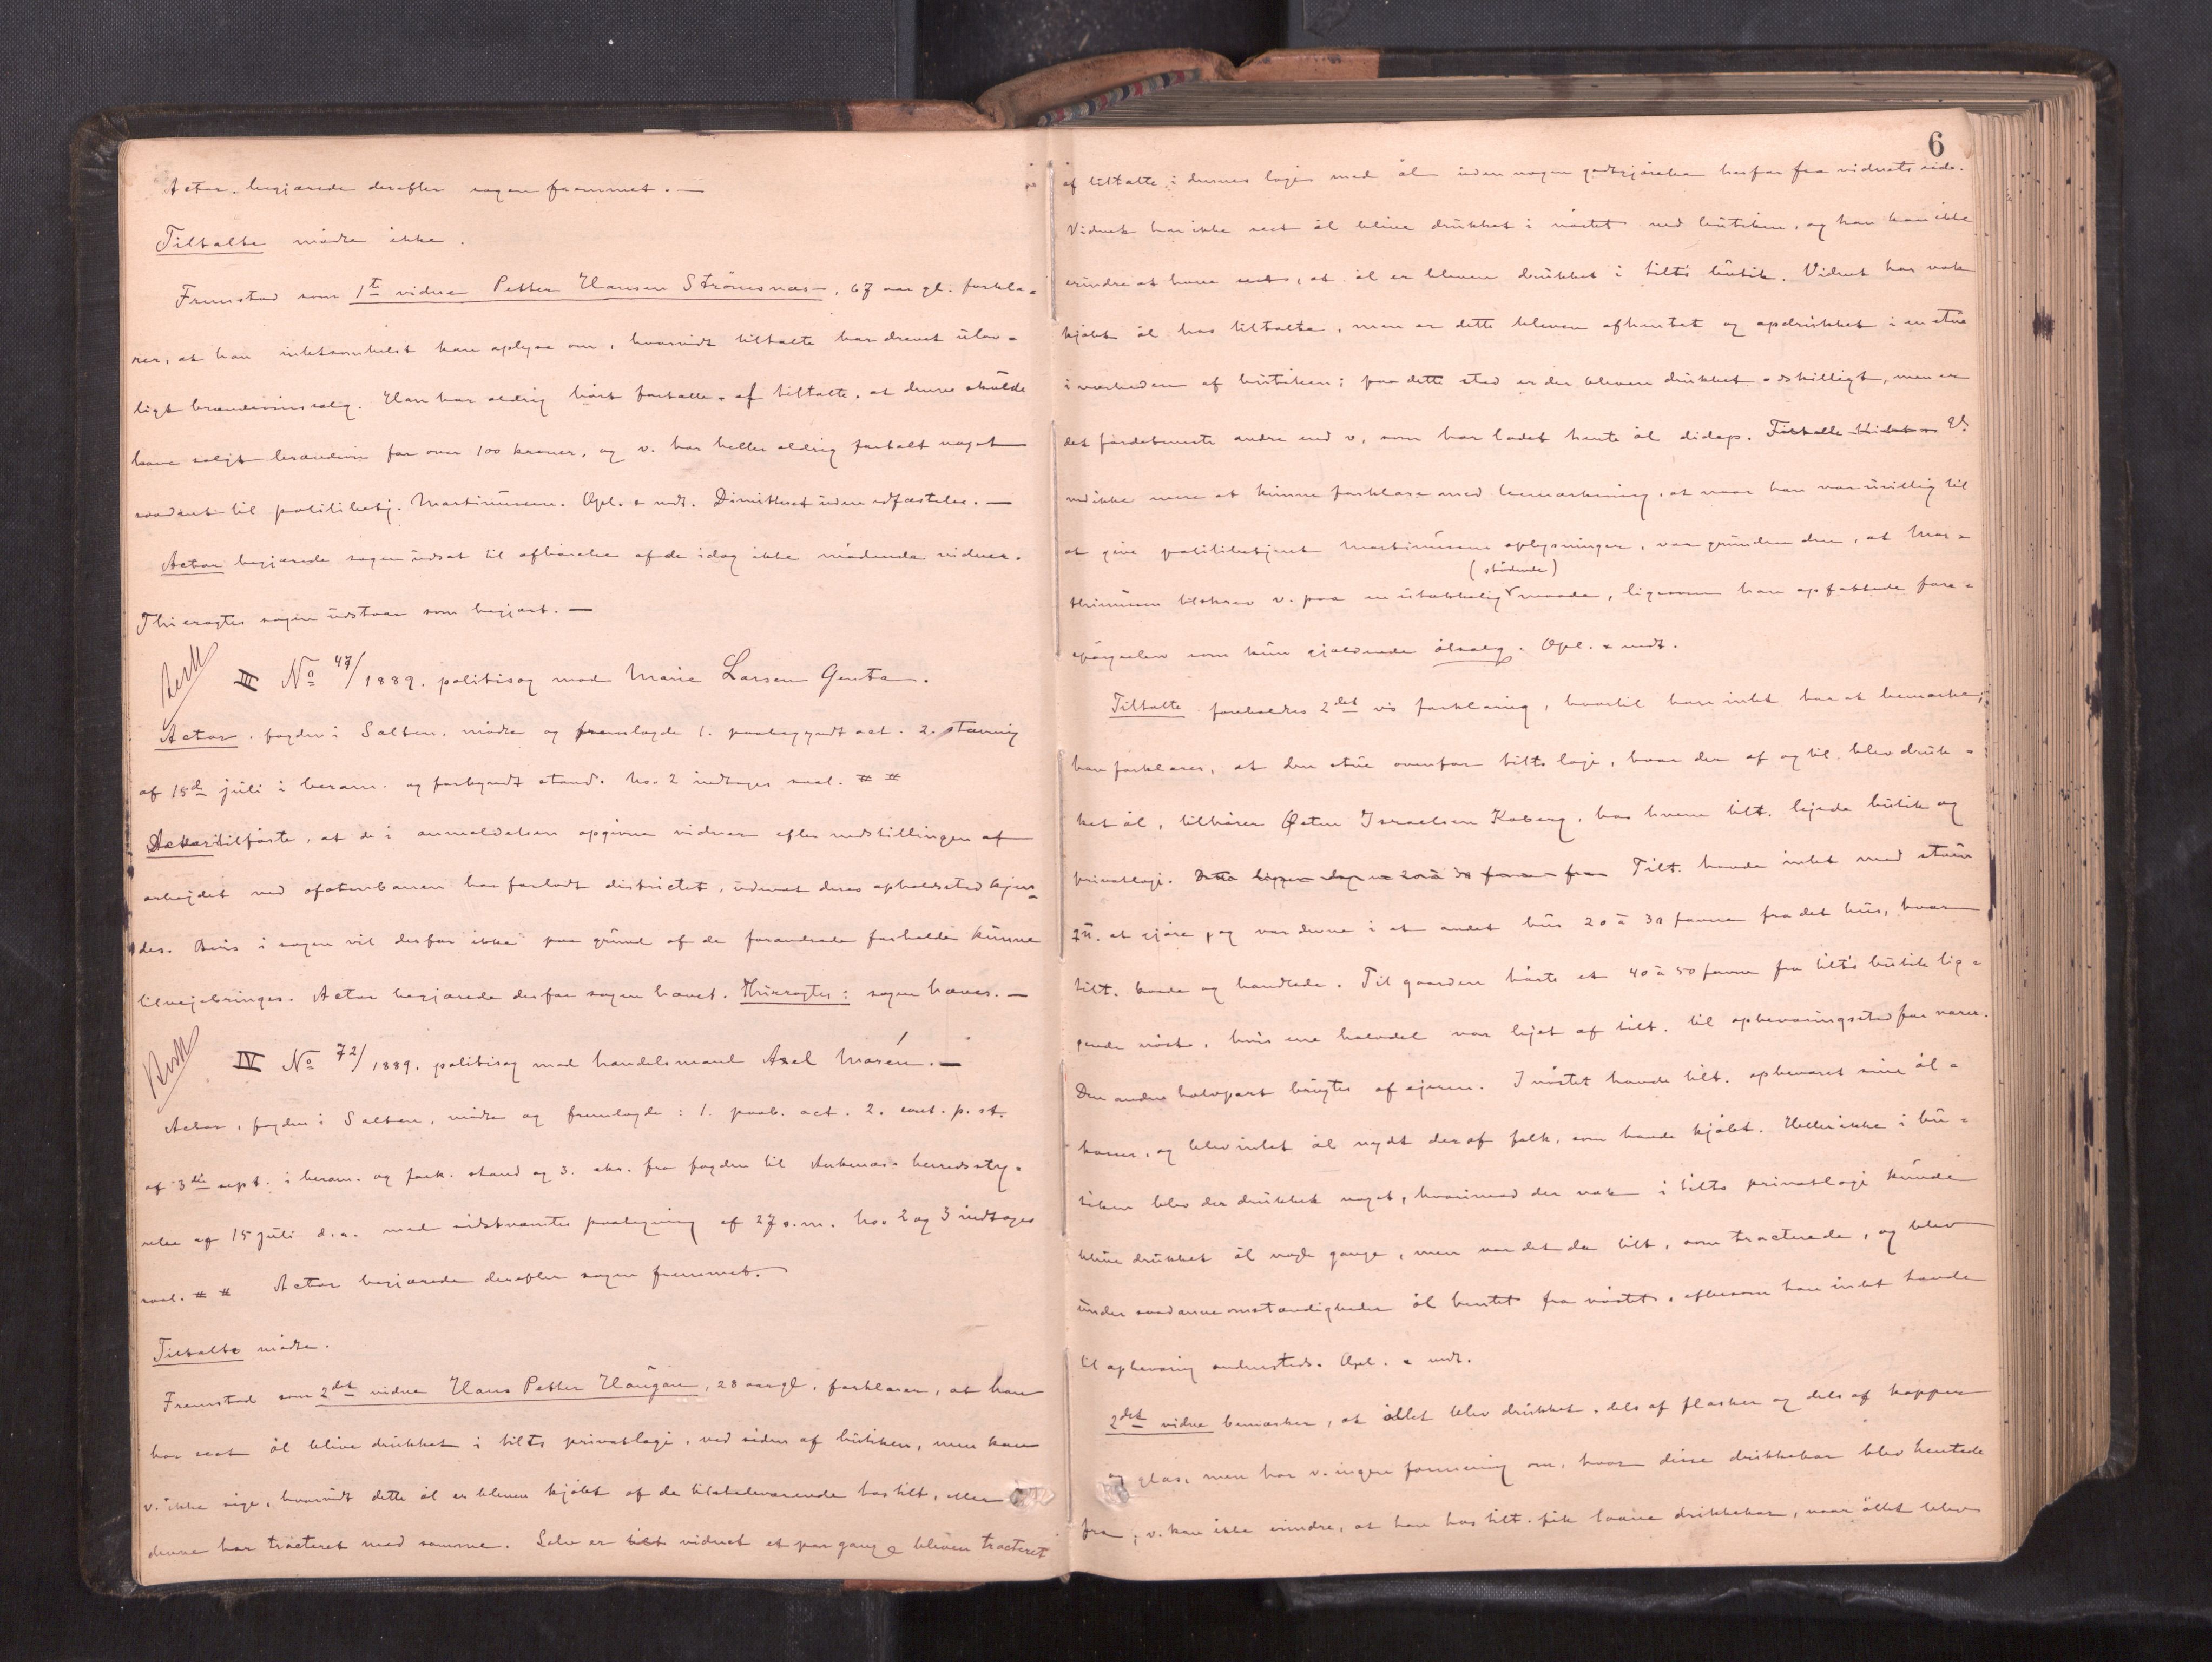 Actor begjærede derefter sagen fremmet. —
Tiltalte mødte ikke.
Fremstod som 1te vidne Petter Hansen Strömsnæs, 67 aar gl. forkla-
rer, at han intetsomhelst kan oplyse om, hvorvidt tiltalte har drevet ulov-
ligt brændevinssalg. Han har aldrig hört fortalle af tiltalte, at denne skulde
have solgt brændevin for over 100 kroner, og v. har heller aldrig fortalt noget
saadant til politibetj. Martinusen. Opl. & vedt. Dimitteret uden edfæstelse. —
Actor begjærede sagen udsat til afhörelse af de idag ikke mödende vidner.
Thi eragtes sagen udstaar som begjært. —
III No 47/1889. politisag mod Marie Larsen Genta.
Actor, fogden i Salten, mödte og fremlagde 1. paabegyndt act. 2. stævning
af 15de juli i beram. og forkyndt stand. No. 2 indtages saal. # #
Actor tilförte, at de i anmeldelsen opgivne vidner efter nedstillingen af
arbejdet ved ofotenbanen har forladt districtet, uden at deres opholdssted kjen-
des. Bevis i sagen vil derfor ikke paa grund af de forandrede forholde kunne
tilvejebringes. Actor begjærede derfor sagen hævet. Thi eragtes: sagen hæves. —
IV No 72/1889. politisag mod handelsmand Axel Morén. —
Actor, fogden i Salten, mödte og fremlagde: 1. paab. act. 2. cont. p. st.
af 3die sept. i beram. og fork. stand og 3. skr. fra fogden til Ankenæs herredssty-
relse af 15 juli d. a. med sidstnævntes paategning af 27 s. m. No. 2 og 3 indtages
saal. # # Actor begjærede derefter sagen fremmet.
Tiltalte mödte.
Fremstod som 2det vidne Hans Petter Haugan, 28 aar gl. forklarer, at han
har seet öl blive drukket i tilts privatlogi, ved siden af butiken, men kan
v. ikke sige, hvorvidt dette öl er bleven kjöbt af de tilstedeværende hos tilt, eller
denne har tracteret med samme. Selv er vidnet et par gange bleven tracteret
6
af tiltalte i dennes logi med öl uden nogen godtgjörelse herfor fra vidnets side.
Vidnet har ikke seet öl blive drukket i nöstet ved butiken, og han kan ikke
erindre at have seet, at öl er bleven drukket i tilts butik. Vidnet har nok
kjöbt öl hos tiltalte, men er dette bleven afhentet og opdrukket i en stue
i nærheden af butiken; paa dette sted er der bleven drukket adskilligt, men er
det fordetmeste andre end v, som har ladet hente öl didop. V.
ved ikke mere at kunne forklare med bemærkning, at naar han var uvillig til
at give politibetjent Martinusen oplysninger, var grunden den, at Mar-
(stödende)
thinusen tilskrev v. paa en utækkelig maade, ligesom han opfattede fore-
spörgselen som kun gjældende ölsalg. Opl. & vedt.
Tiltalte foreholdtes 2det vis forklaring, hvortil han intet har at bemærke;
han forklarer, at den stue ovenfor tilts logi, hvor der af og til blev druk-
ket öl, tilhörer Östen Israelsen Kobberg, hos hvem tilt. lejede butik og
privatlogi. Tilt. havde intet med stuen
at gjöre, og var denne i et andet hus 20 à 30 favne fra det hus, hvor
tilt. boede og handlede. Til gaarden hörte et 40 à 50 favne fra tilts butik lig-
gende nöst, hvis ene halvdel var lejet af tilt. til opbevaringssted for varer.
Den anden halvpart brugtes af ejeren. I nöstet havde tilt. opbevaret sine öl-
kasser, og blev intet öl nydt der af folk, som havde kjöbt. Heller ikke i bu-
tiken blev der drukket noget, hvorimod der nok i tilts privatlogi kunde
blive drukket öl nogle gange, men var det da tilt, som tracterede, og blev
under saadanne omstændigheder öl hentet fra nöstet, eftersom han intet havde
til opbevaring andensteds. Opl. & vedt.
2det vidne bemærker, at öllet blev drukket, dels af flasker og dels af kopper
og glas, men har v. ingen formening om, hvor disse drikkekar blev hentede
fra; v. kan ikke erindre, at han hos tilt. fik laane drikkekar, naar öllet blev